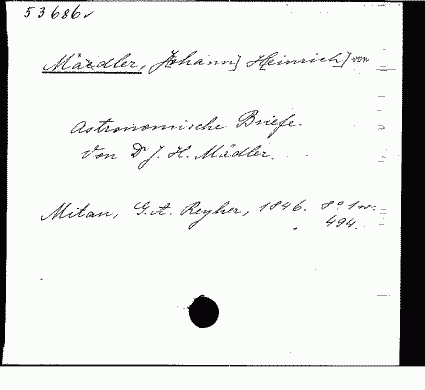 53686
Mädler, J[ohann] Heinrich] von
Astronomische Briefe.
Von Dr J. H. Mädler.
Mitau, G. A. Reyher, 1846. 8° 1 w.
494.